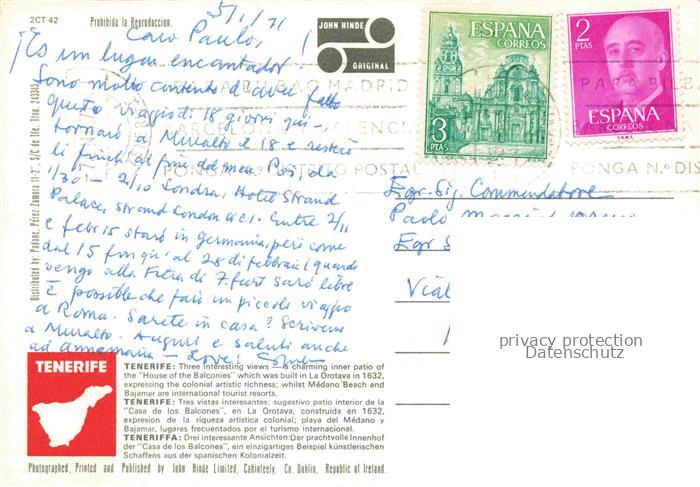 2CT 42
Prohibida la Reproduccion.
5/1/71
Caro Paulo,
¡Es un lugar encantador!
Sono molto contento di aver fatto
questo viaggio di 18 giorni qui –
tornarò a Muralto el 18 e resterò
lì finchè al fine del mese. Poi, da
1/30 – 2/10 Londra. Hotel Strand
Palace, Strand London WC1. Entre 2/11
e febr 15 starò in Germania, però come
dal 15 fin qu' al 28 di febbraio (quando
vengo alla Fiera di F.furt sarò libre
è possibile che farò un piccolo viaggio
a Roma. Sarete in casa? Scriveme
a Muralto. Auguri e saluti anche
ad Annamaria – Love!
JOHN HINDE
ORIGINAL
ESPAÑA
CORREOS
3
PTAS
2
PTAS
ESPAÑA
CORREOS
MADRID
PARA
BARCELONA
PONGA N.º DISTRITO POSTAL
PONGA N.º DIS
Egr. Sig. Commendatore
Paolo
Egr S
Vial
privacy protection
Datenschutz
Distributed by: Padane, Pérez Zamora 11-2°. S/C de Tfe. Tfno. 243345
TENERIFE
TENERIFE: Three interesting views – a charming inner patio of
the "House of the Balconies" which was built in La Orotava in 1632,
expressing the colonial artistic richness; whilst Médano Beach and
Bajamar are international tourist resorts.
TENERIFE: Tres vistas interesantes; sugestivo patio interior de la
"Casa de los Balcones", en La Orotava, construida en 1632,
expresion de la riqueza artistica colonial; playa del Médano y
Bajamar, lugares frecuentados por el turismo internacional.
TENERIFFA: Drei interessante Ansichten: Der prachtvolle Innenhof
der "Casa de los Balcones", ein einzigartiges Beispiel künstlerischen
Schaffens aus der spanischen Kolonialzeit.
Photographed, Printed and Published by John Hinde Limited, Cabinteely, Co. Dublin, Republic of Ireland.